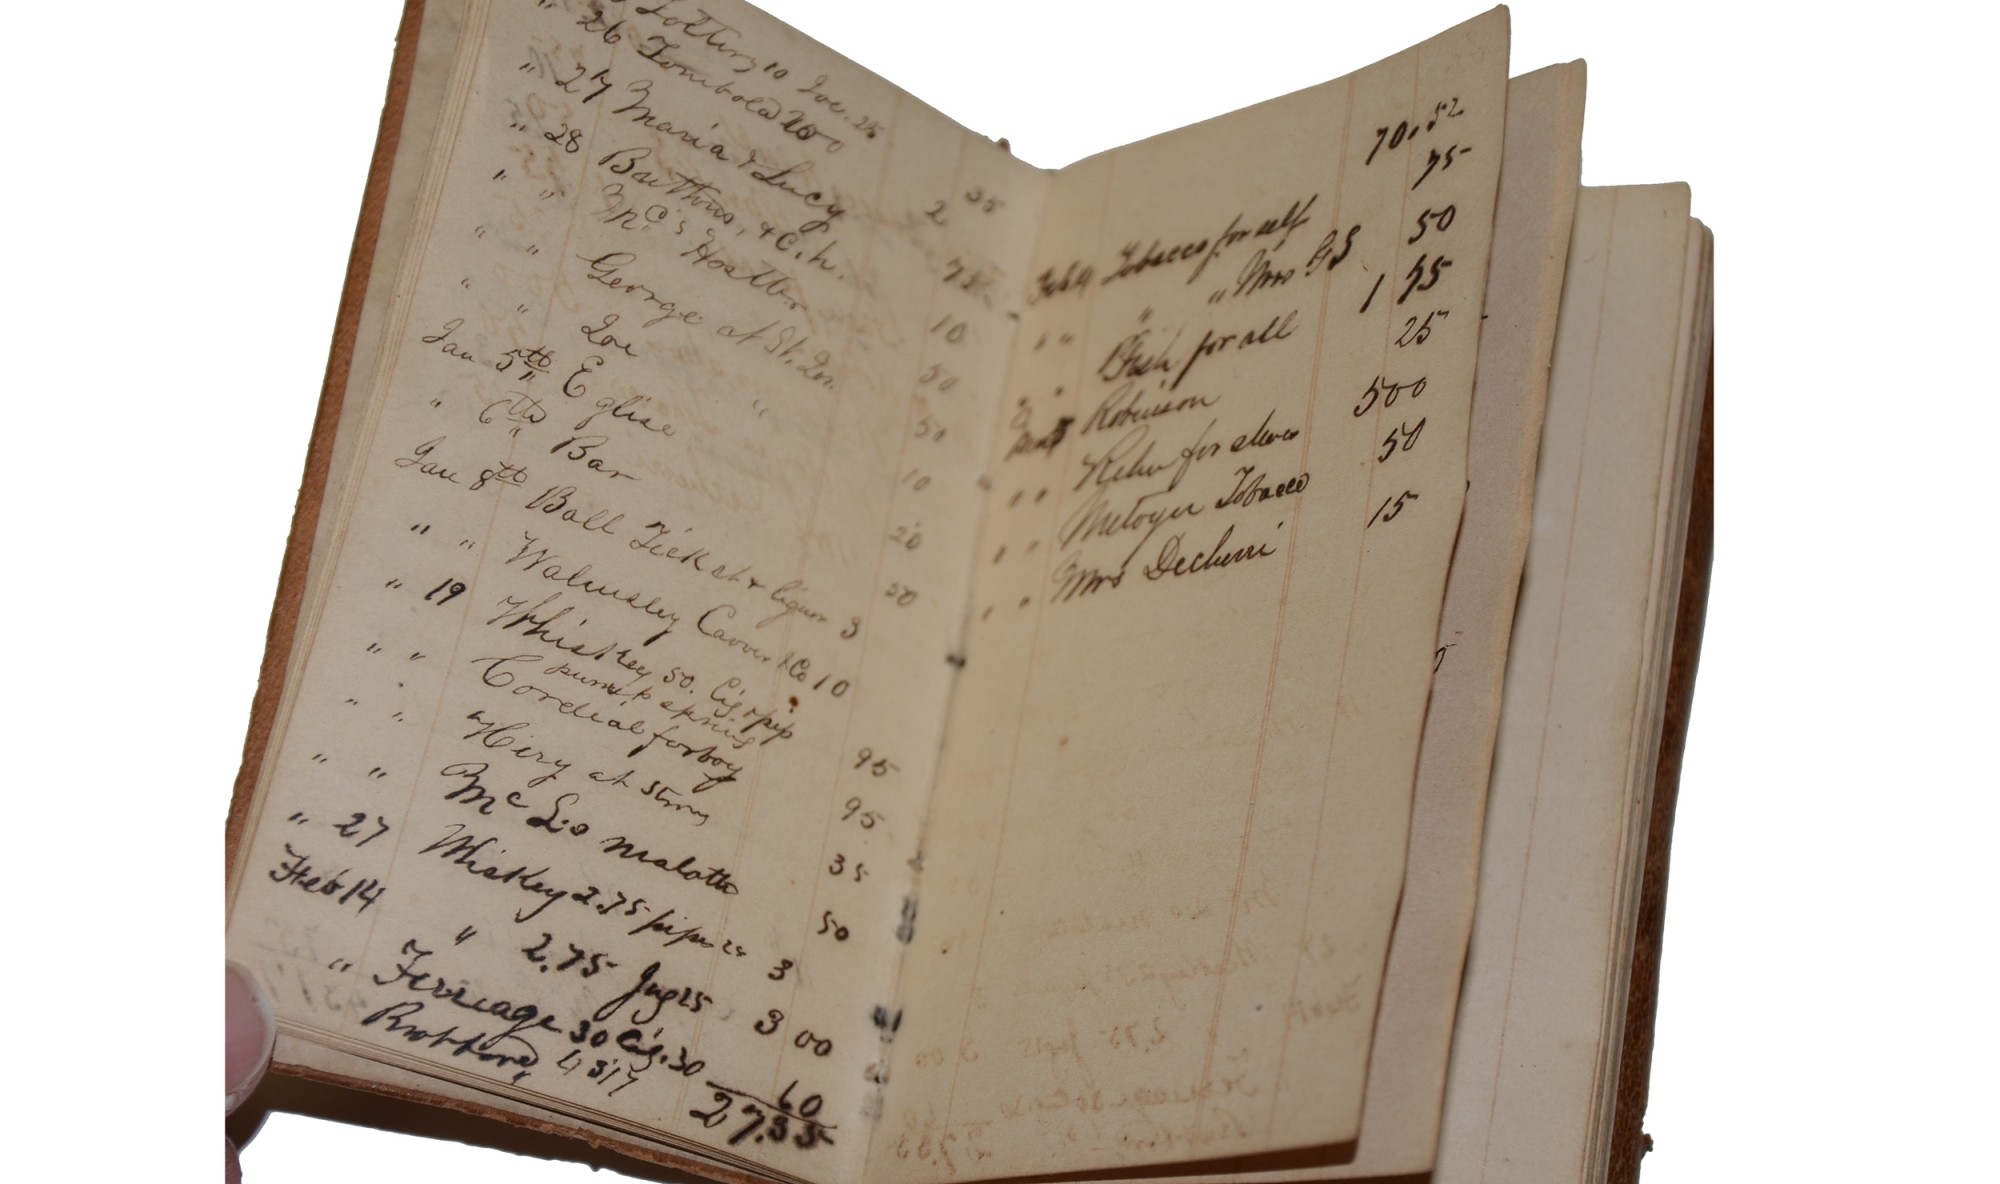 Lottery 10 Zoe. 25
" 26 Tombola 200
" 27 Maria & Lucy 2 35
" 28 Barthons, & C. h. 75
" " McC's Hostler 10
" " George at St. Zoe. 50
" " Zoe " 50
Jan 5th Eglise 10
" 6th Bar 20
Jan 8th Ball Ticket & liquor 3 50
" " Walmsley Carver & Co 10
" 19 Whiskey 50. Cig & pip
pump spring 95
" " Cordial for boy 95
" " Hiry at Stms 35
" " Mc Leo Malotte 50
" 27 Whiskey 2.75 pipes 25 3
Feb 14 " 2.75 Jug 25 3 00
" Ferriage 30 Cig. 30 60
Brot ford 43 17 27.35
70.52
Feb 14 Tobacco for self 75
" " " " Mrs GS 50
" " Fish for all 1 75
Robinson 25
" " for shoes 500
" " Metoyer Tobacco 50
" " Mrs Decherri 15